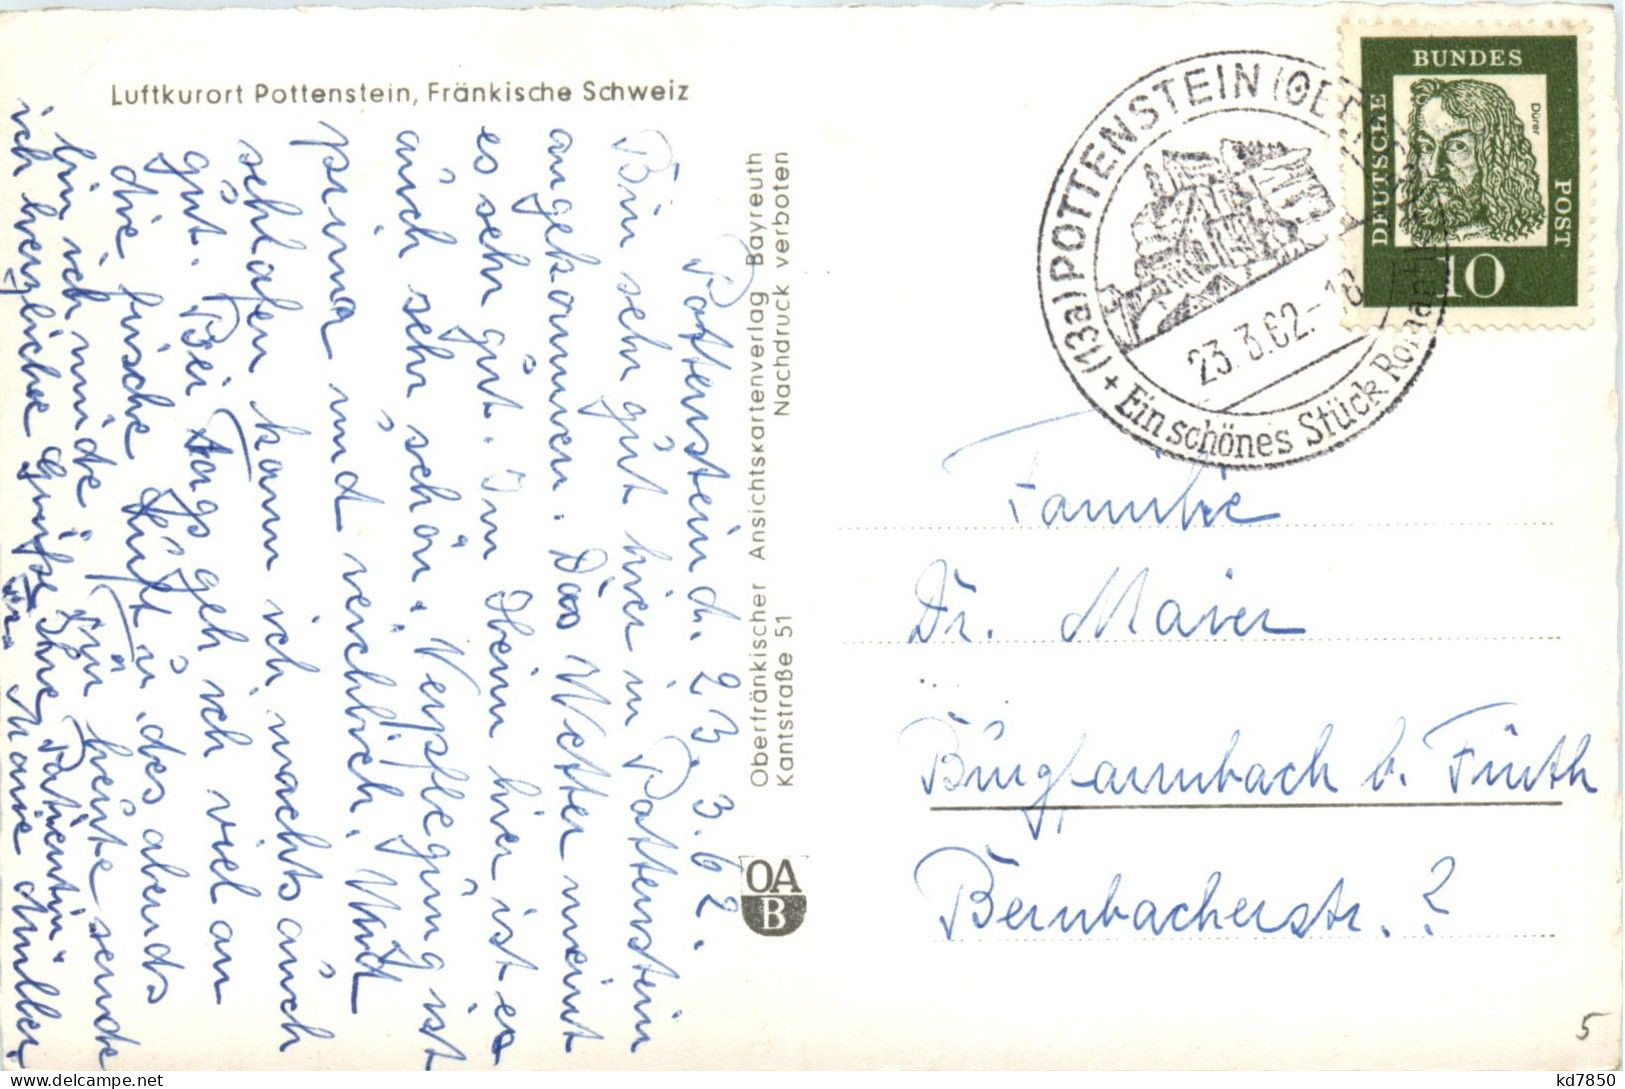 Luftkurort Pottenstein, Fränkische Schweiz
Pottenstein d. 23.3.62.
Bin sehr gut hier in Pottenstein
angekommen. Das Wetter meint
es sehr gut. Im Heim hier ist es
auch sehr schön. Verpflegung ist
prima und reichlich. Und
schlafen kann ich nachts auch
gut. Bei Tags geh ich viel an
die frische Luft u. des abends
bin ich müde. Für heute sende
ich herzliche Grüße Ihre Patientin
Fr. Marie Müller
Oberfränkischer Ansichtskartenverlag Bayreuth
Kantstraße 51 Nachdruck verboten
OA
B
(13a) POTTENSTEIN (OBERFR
23.3.62.-18
+ Ein schönes Stück Romantik
DEUTSCHE
BUNDES
POST
Dürer
10
Familie
Dr. Maier
Burgfarrnbach b. Fürth
Bernbacherstr. 2
5
kd7850